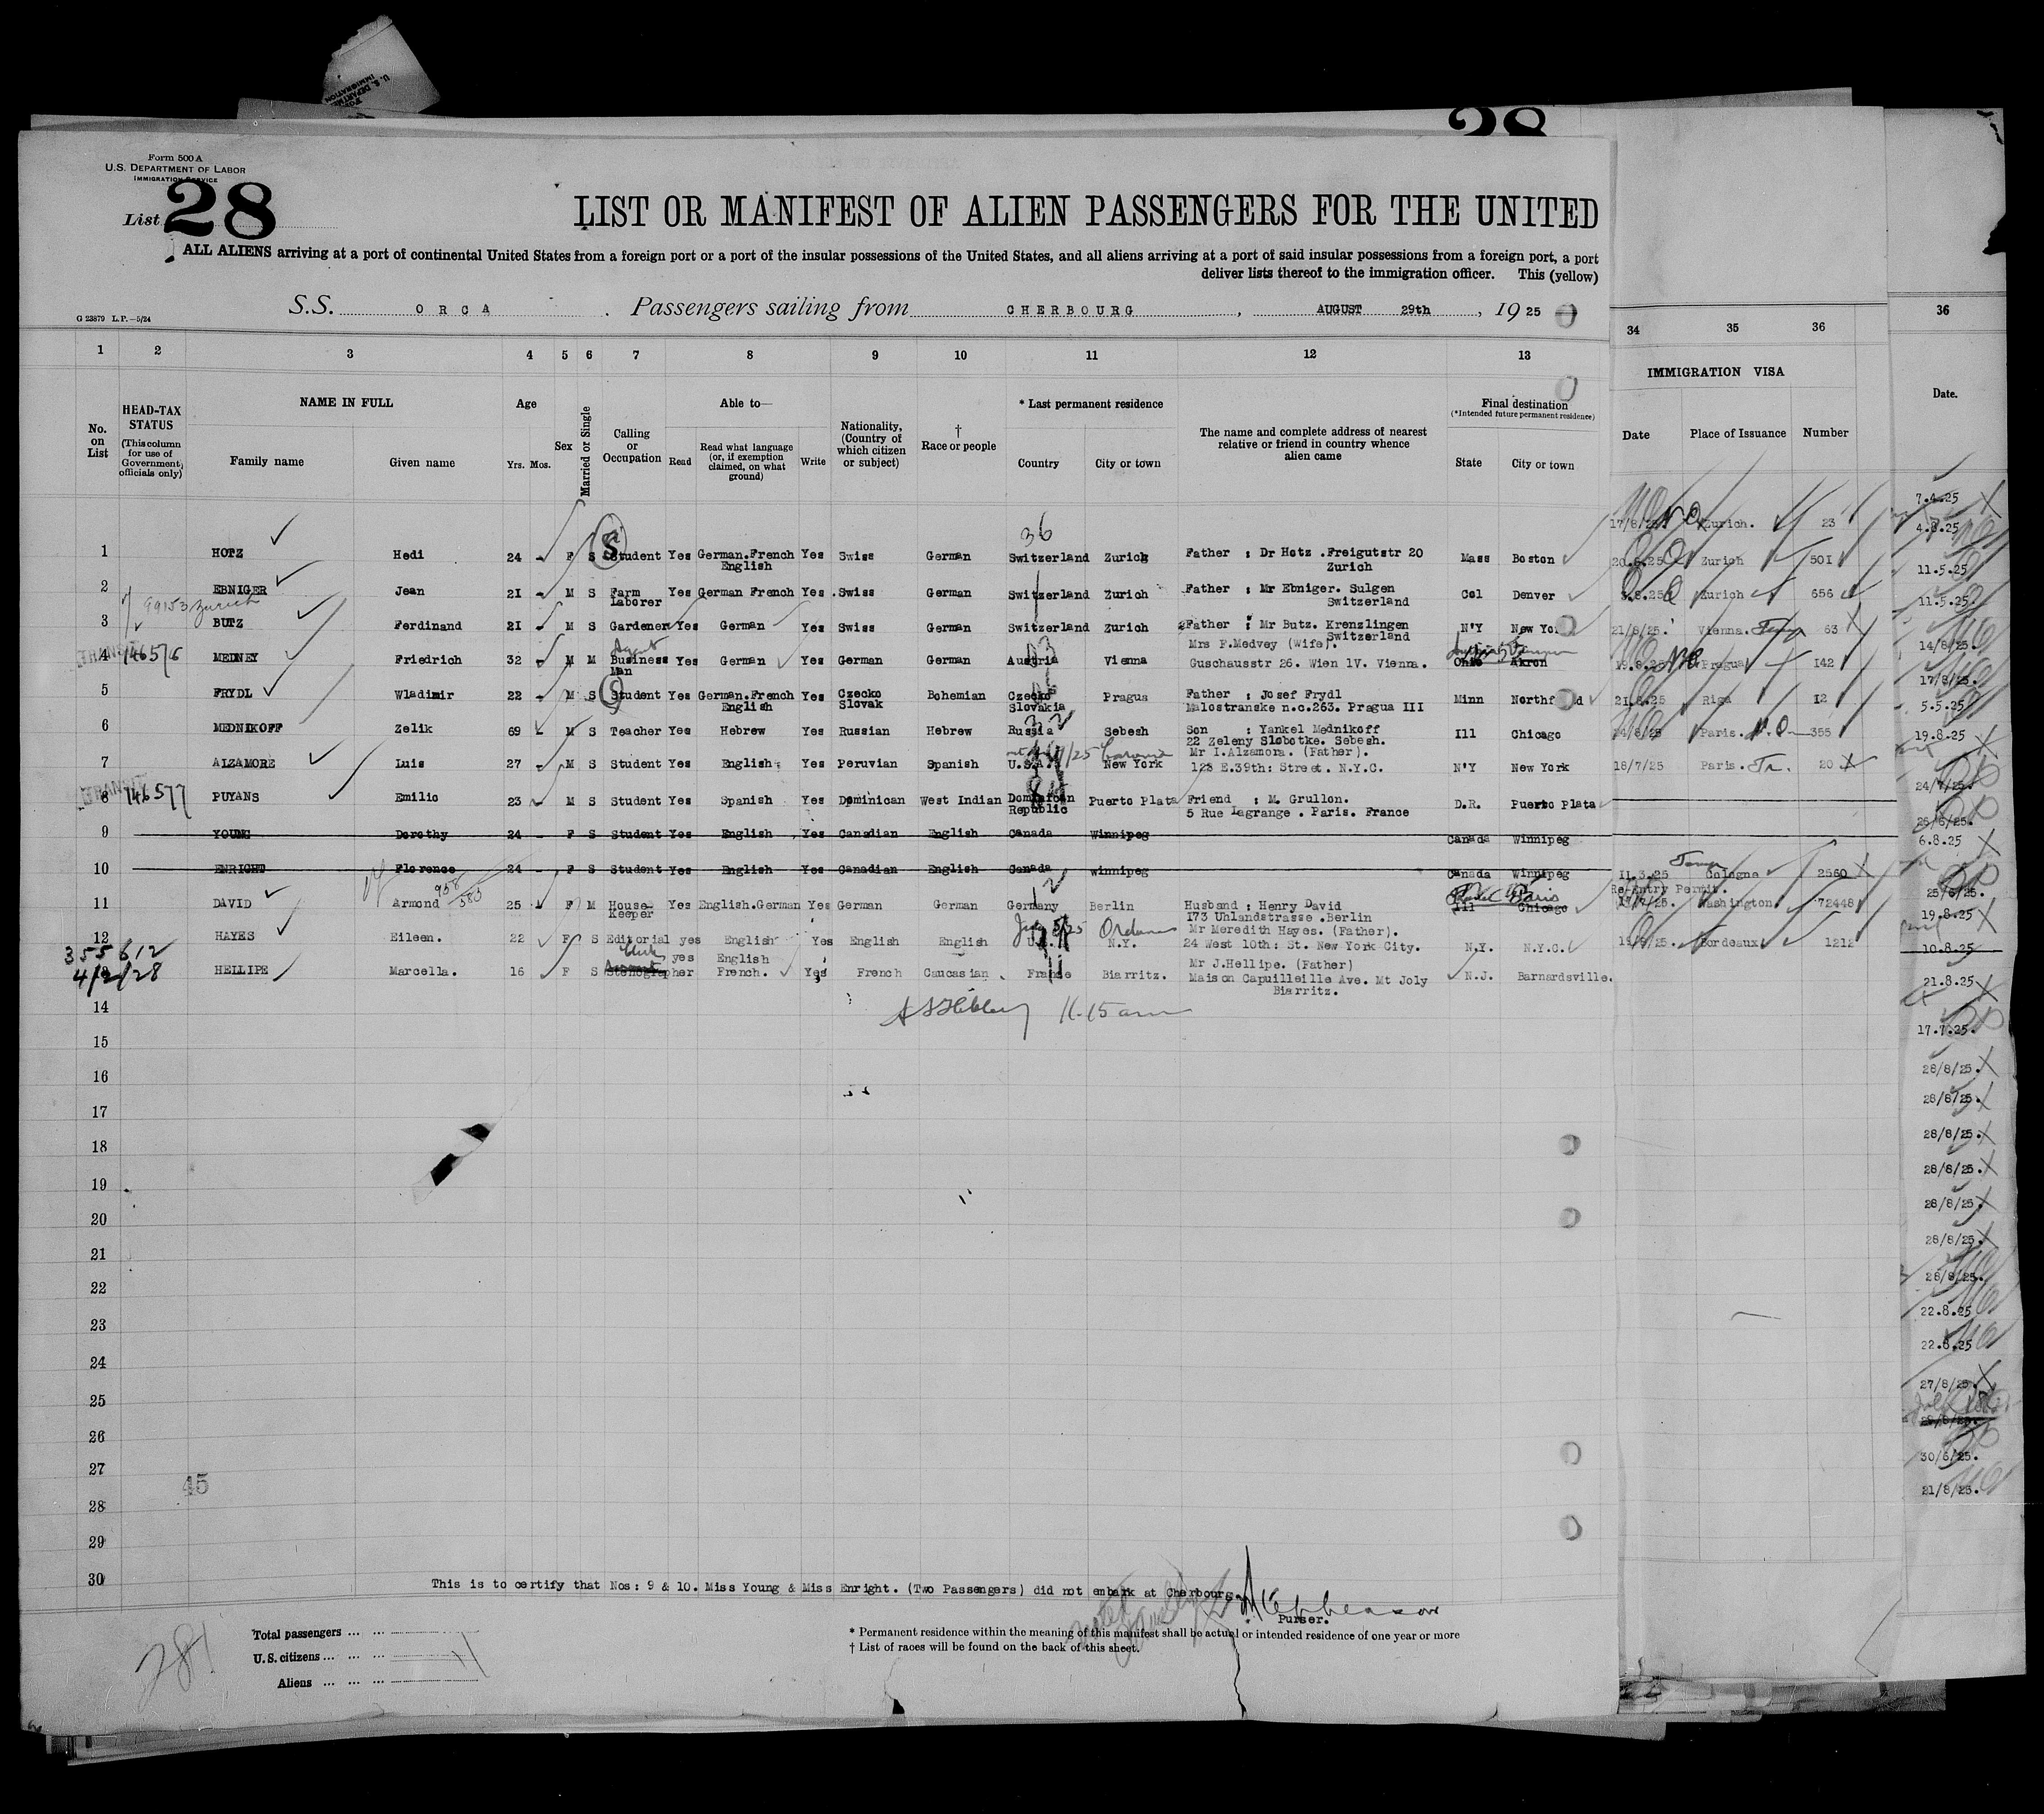 U. S. DEPARTME
IMMIGRATION
28
Form 500 A
U.S. DEPARTMENT OF LABOR
IMMIGRATION SERVICE
List 28
LIST OR MANIFEST OF ALIEN PASSENGERS FOR THE UNITED
ALL ALIENS arriving at a port of continental United States from a foreign port or a port of the insular possessions of the United States, and all aliens arriving at a port of said insular possessions from a foreign port, a port
deliver lists thereof to the immigration officer. This (yellow)
S.S. ORCA . Passengers sailing from CHERBOURG , AUGUST 29th , 19 25
G 23879 L.P.—5/24
1 2 3 4 5 6 7 8 9 10 11 12 13 34 35 36 36
IMMIGRATION VISA
No. on List
HEAD-TAX STATUS
(This column for use of Government officials only)
NAME IN FULL
Family name Given name
Age
Yrs. Mos.
Sex
Married or Single
Calling or Occupation
Able to—
Read
Read what language (or, if exemption claimed, on what ground)
Write
Nationality, (Country of which citizen or subject)
† Race or people
* Last permanent residence
Country City or town
The name and complete address of nearest relative or friend in country whence alien came
Final destination
(*Intended future permanent residence)
State City or town
Date Place of Issuance Number
Date.
1 HOTZ Hedi 24 - F S Student Yes German.French English Yes Swiss German Switzerland Zurich Father : Dr Hotz .Freigutstr 20 Zurich Mass Boston 17/8/25. Zurich. 23
2 EBNIGER Jean 21 - M S Farm Laborer Yes German French Yes .Swiss German Switzerland Zurich Father : Mr Ebniger. Sulgen Switzerland Col Denver 20.8.25 Zurich 501
99153 Zurich
3 BUTZ Ferdinand 21 - M S Gardener Yes German Yes Swiss German Switzerland Zurich Father : Mr Butz. Krenzlingen Switzerland N'Y New Yo 8.25 Zurich 656
TRANSIT 746576
4 MEDNEY Friedrich 32 - M M Agent Business Man Yes German Yes German German Austria Vienna Mrs F.Medvey (Wife). Guschausstr 26. Wien 1V. Vienna. Ohio Akron 21/8/25. Vienna. 63
5 FRYDL Wladimir 22 - M S Student Yes German.French English Yes Czecko Slovak Bohemian Czecko Slovakia Pragua Father : Josef Frydl Malostranske n.c.263. Pragua III Minn Northf d 19.8.25 Pragua 142
6 MEDNIKOFF Zelik 69 M S Teacher Yes Hebrew Yes Russian Hebrew Russia Sebesh Son : Yankel Mednikoff 22 Zeleny Slobotke. Sebesh. Ill Chicago 21.8.25 Riga 12
7 ALZAMORE Luis 27 - M S Student Yes English Yes Peruvian Spanish U.S.A. New York Mr I.Alzamora. (Father). 128 E.39th: Street. N.Y.C. N'Y New York 24/8/25 Paris. 355
TRANSIT 746577
8 PUYANS Emilio 23 M S Student Yes Spanish Yes Dominican West Indian Dominican Republic Puerto Plata Friend : M. Grullon. 5 Rue Lagrange . Paris. France D.R. Puerto Plata 18/7/25 Paris. Tr. 20
9 YOUNG Dorothy 24 - F S Student Yes English Yes Canadian English Canada Winnipeg Canada Winnipeg
10 ENRICHT Florence 24 - F S Student Yes English Yes Canadian English Canada winnipeg Canada Winnipeg
11 DAVID Armond 25 F M House Keeper Yes English.German Yes German German Germany Berlin Husband : Henry David 173 Uhlandstrasse .Berlin Ill Chicago 11.3.25 Cologne 2560
12 HAYES Eileen. 22 F S Editorial Clerk yes English Yes English English U.S. N.Y. Mr Meredith Hayes. (Father). 24 West 10th: St. New York City. N.Y. N.Y.C. Re-Entry Permit. Washington 72448
355612
4/2/28
HELLIPE Marcella. 16 F S Stenographer yes English French. Yes French Caucasian France Biarritz. Mr J.Hellipe. (Father) Maison Capuilleille Ave. Mt Joly Biarritz. N.J. Barnardsville. Bordeaux 1212
11-15 am
14
15
16
17
18
19
20
21
22
23
24
25
26
27
28
29
30
45
7.4.25
4.8.25
11.5.25
11.5.25
14/8/25.
17/8/25.
5.5.25
19.8.25
24/7/25.
6.8.25
25/6/25.
19.8.25
10.8.25
21.8.25
17.7.25.
28/8/25.
28/8/25.
28/8/25.
28/8/25.
28/8/25.
28/8/25.
28/8/25.
22.8.25
22.8.25
27/8/25.
30/6/25.
21/8/25.
This is to certify that Nos: 9 & 10. Miss Young & Miss Enright. (Two Passengers) did not embark at Cherbourg.
Purser.
Total passengers ... ...
U. S. citizens ... ... ...
Aliens ... ... ...
* Permanent residence within the meaning of this manifest shall be actual or intended residence of one year or more
† List of races will be found on the back of this sheet.